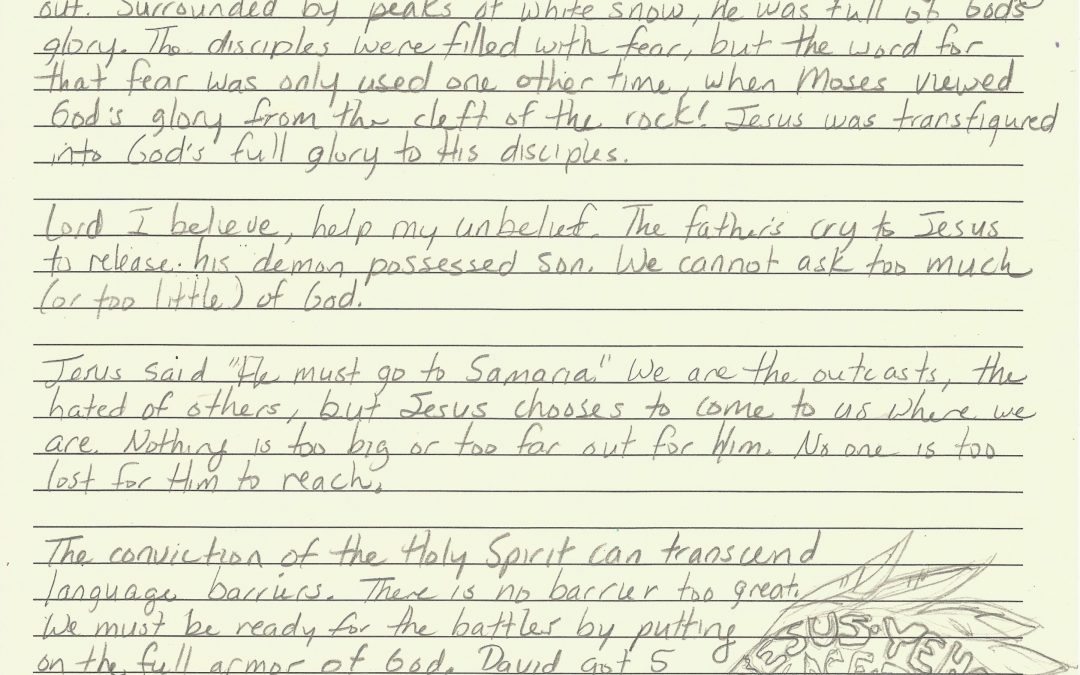 out. Surrounded by peaks of white snow, he was full of God's
glory. The disciples were filled with fear, but the word for
that fear was only used one other time, when Moses viewed
God's glory from the cleft of the rock! Jesus was transfigured
into God's full glory to His disciples.
Lord I believe, help my unbelief. The father's cry to Jesus
to release his demon possessed son. We cannot ask too much
(or too little) of God.
Jesus said "He must go to Samaria." We are the outcasts, the
hated of others, but Jesus chooses to come to us where we
are. Nothing is too big or too far out for Him. No one is too
lost for Him to reach.
The conviction of the Holy Spirit can transcend
language barriers. There is no barrier too great.
We must be ready for the battles by putting
on the full armor of God. David got 5
JESUS•YEH